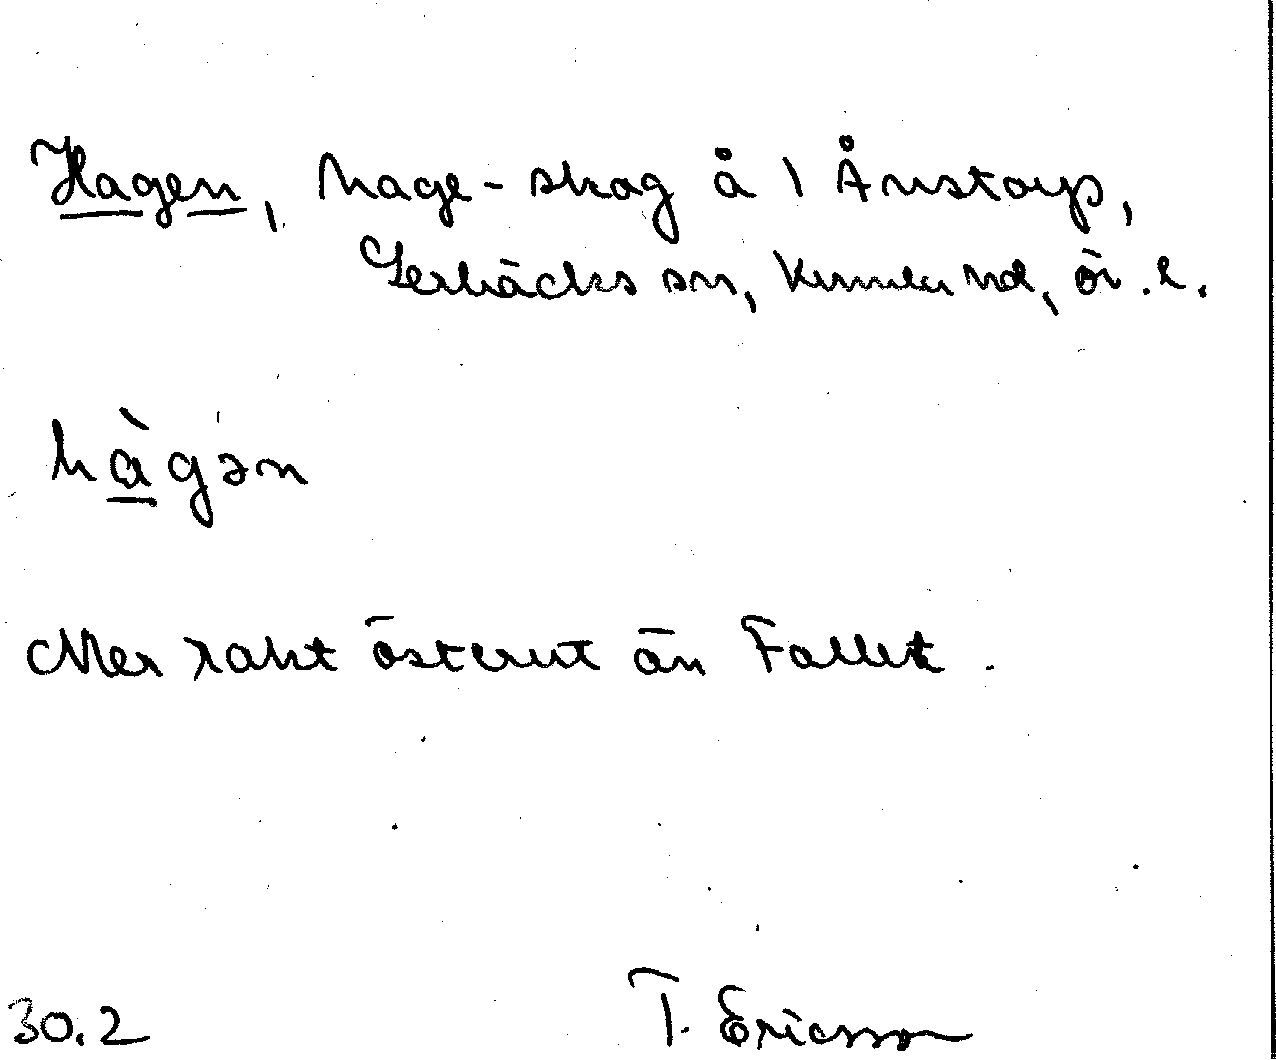 Hagen, hage-skog å 1 Ånstorp,
Lerbäcks sn, Kumla hd, ör.l.
hàgən
Mer rakt österut än Fallet.
30.2 T. Ericsson